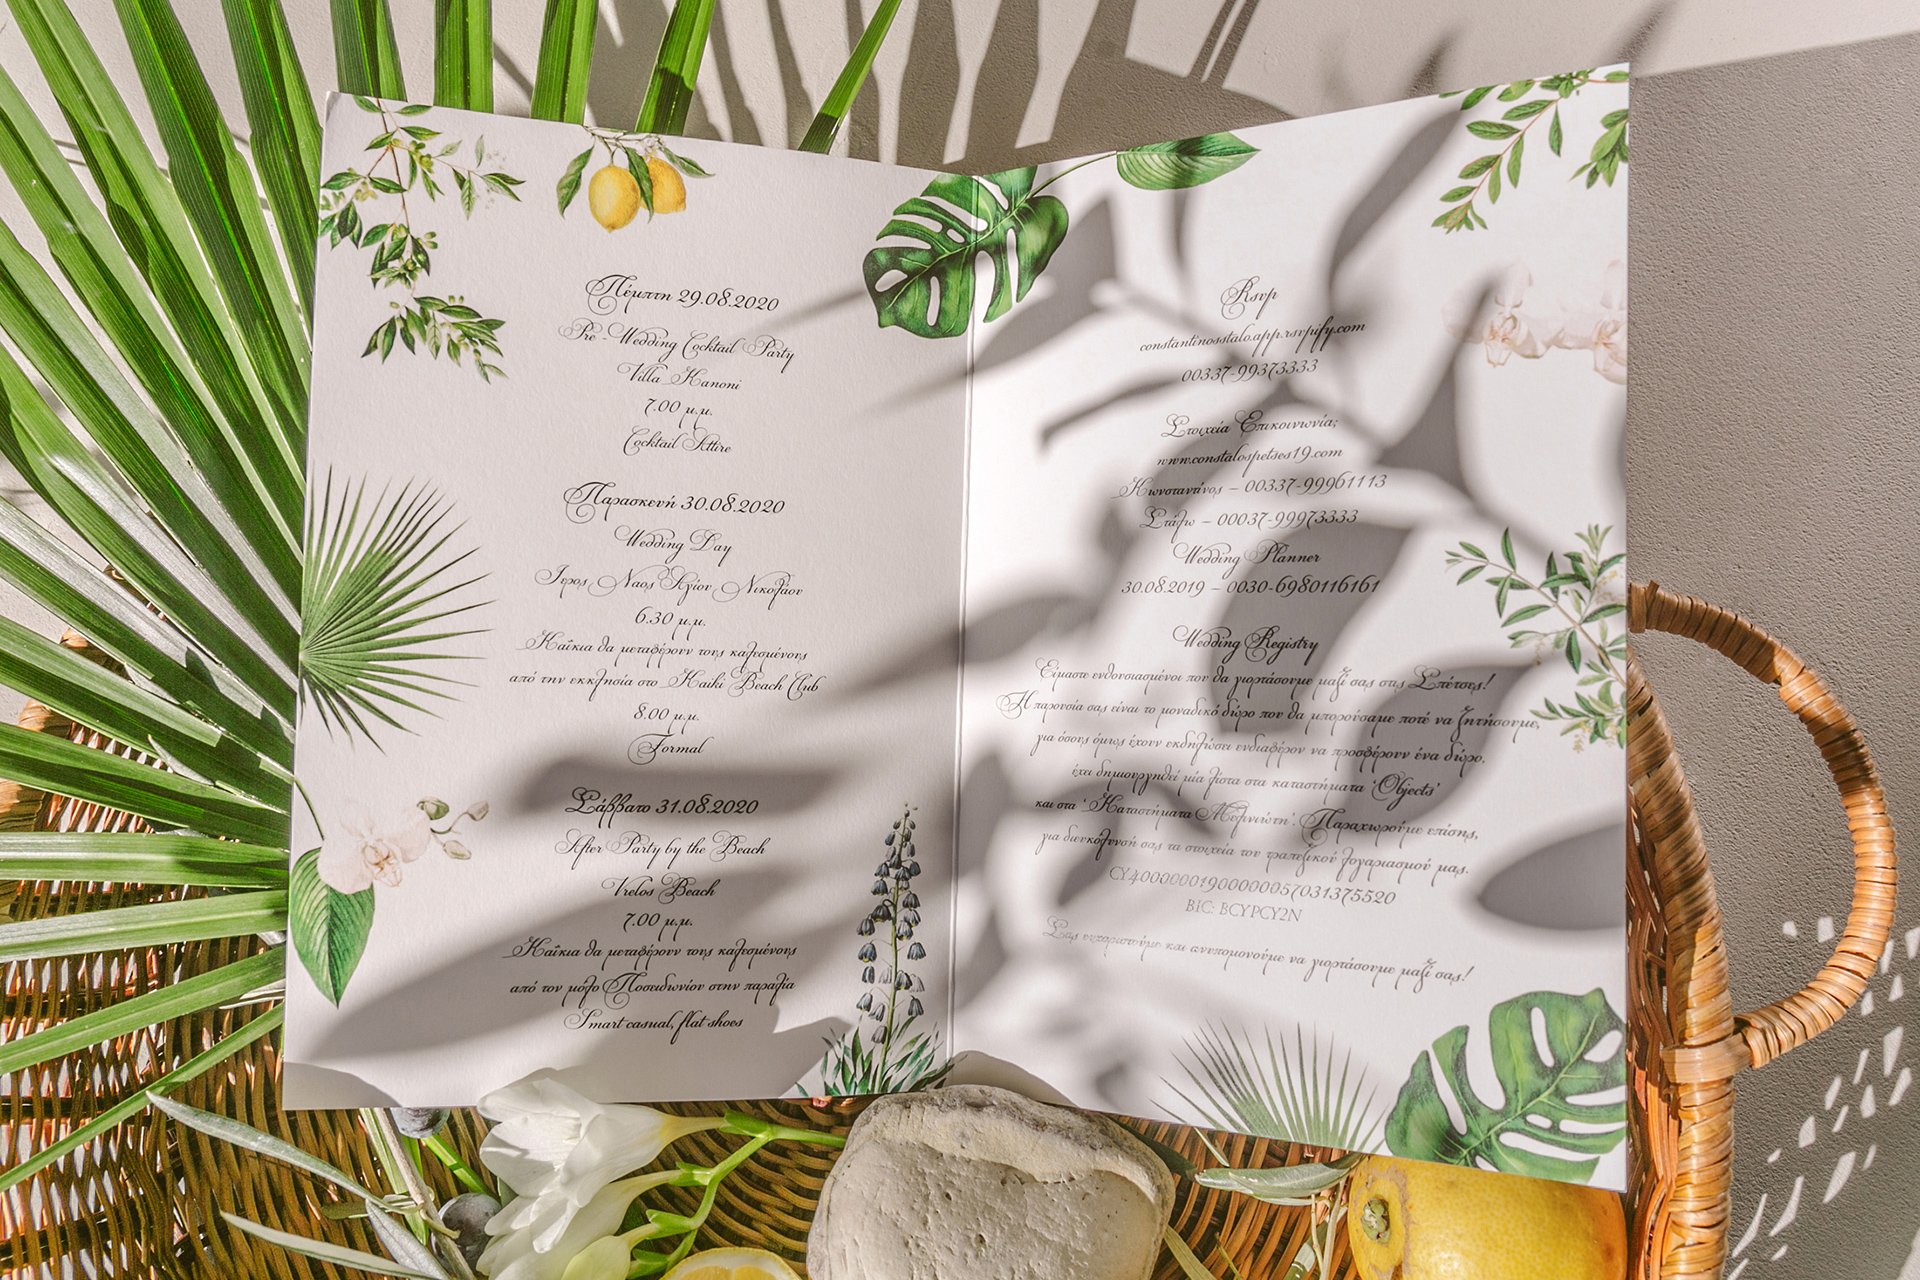 Πέμπτη 29.08.2020
Pre-Wedding Cocktail Party
Villa Kanoni
7.00 μ.μ.
Cocktail Attire
Παρασκευή 30.08.2020
Wedding Day
Ιερος Ναος Αγίου Νικολάου
6.30 μ.μ.
Καΐκια θα μεταφέρουν τους καλεσμένους
από την εκκλησία στο Kaiki Beach Club
8.00 μ.μ.
Formal
Σάββατο 31.08.2020
After Party by the Beach
Vrelos Beach
7.00 μ.μ.
Καΐκια θα μεταφέρουν τους καλεσμένους
από τον μόλο Ποσειδωνίου στην παραλία
Smart casual, flat shoes
Rsvp
constantinosstalo.app.rsvpify.com
00337-99373333
Στοιχεία Επικοινωνία;
www.constalospetses19.com
Κωνσταντίνος – 00337-99961113
Στάλω – 00037-99973333
Wedding Planner
30.08.2019 – 0030-6980116161
Wedding Registry
Είμαστε ενθουσιασμένοι που θα γιορτάσουμε μαζί σας στις Σπέτσες!
Η παρουσία σας είναι το μοναδικό δώρο που θα μπορούσαμε ποτέ να ζητήσουμε,
για όσους όμως έχουν εκδηλώσει ενδιαφέρον να προσφέρουν ένα δώρο,
έχει δημιουργηθεί μία λίστα στα καταστήματα 'Objects'
και στα 'Καταστήματα Μυλωνιώτη'. Παραχωρούμε επίσης,
για διευκόλυνσή σας τα στοιχεία του τραπεζικού λογαριασμού μας.
CY40000001900000057031375520
BIC: BCYPCY2N
Σας ευχαριστούμε και ανυπομονούμε να γιορτάσουμε μαζί σας!